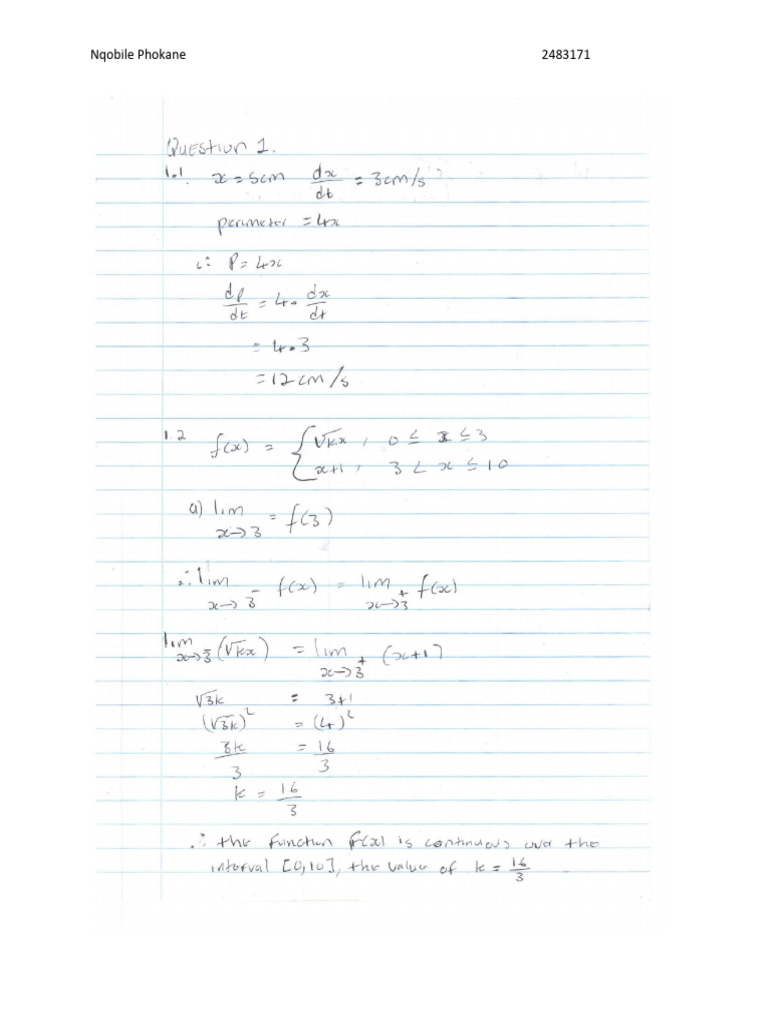 Nqobile Phokane 2483171
Question 1.
1.1. x = 5cm dx/dt = 3cm/s
perimeter = 4x
∴ P = 4x
dP/dt = 4 · dx/dt
= 4 · 3
= 12 cm/s
1.2 f(x) = { √kx , 0 ≤ x ≤ 3
x+1 , 3 < x ≤ 10
a) lim x→3 = f(3)
∴ lim x→3⁻ f(x) = lim x→3⁺ f(x)
lim x→3⁻ (√kx) = lim x→3⁺ (x+1)
√3k = 3+1
(√3k)² = (4)²
3k/3 = 16/3
k = 16/3
∴ the function f(x) is continuous over the
interval [0,10], the value of k = 16/3